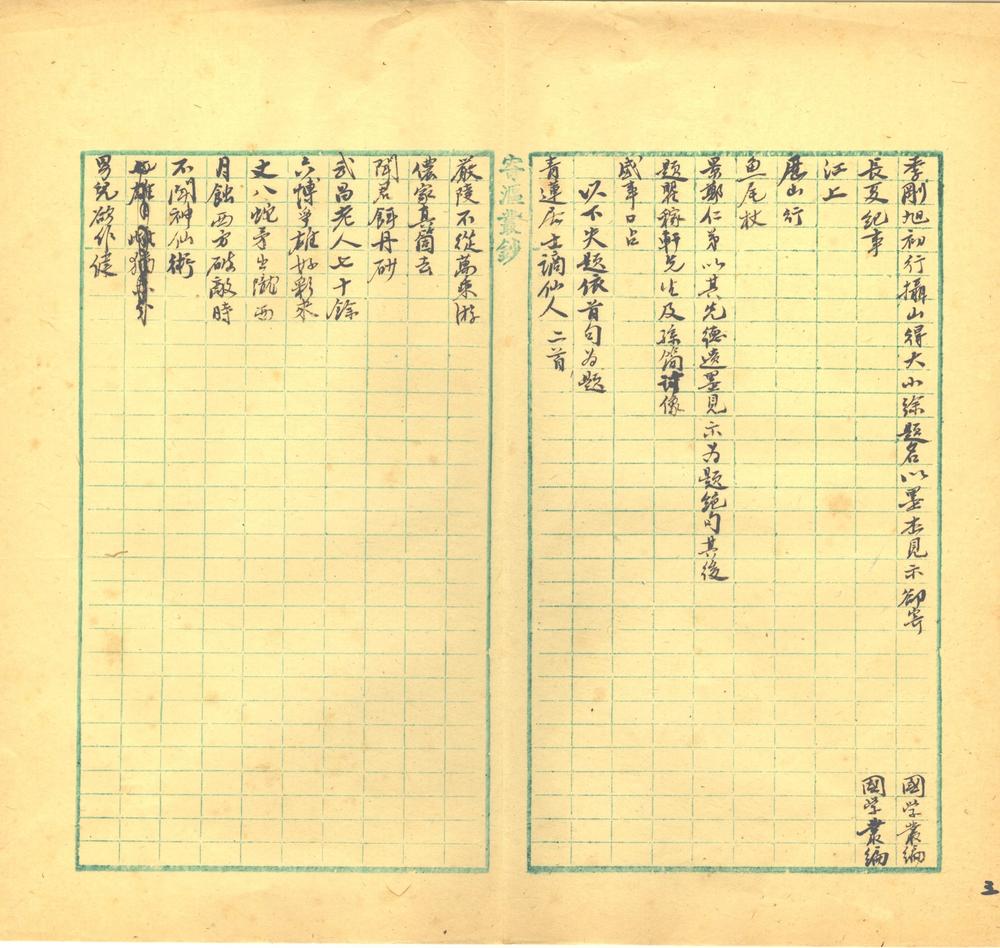 季剛旭初行攝山得大小徐題名以墨本見示卻寄 國学叢編
長夏紀事 國学叢編
江上
歷山行
魚尾杖
景鄭仁弟以其先德遺墨見示为題絕句其後
題翟稼軒先生及孫簡討像
感事口占
以下失題依首句为題
青蓮居士謫仙人 二首
寄漚叢鈔
嚴陵不從萬乘游
儂家真箇去
聞君餌丹砂
武昌老人七十餘
六博爭雄好彩來
丈八蛇矛出隴西
月蝕西方破敵時
不聞神仙術
男兒欲作健
3